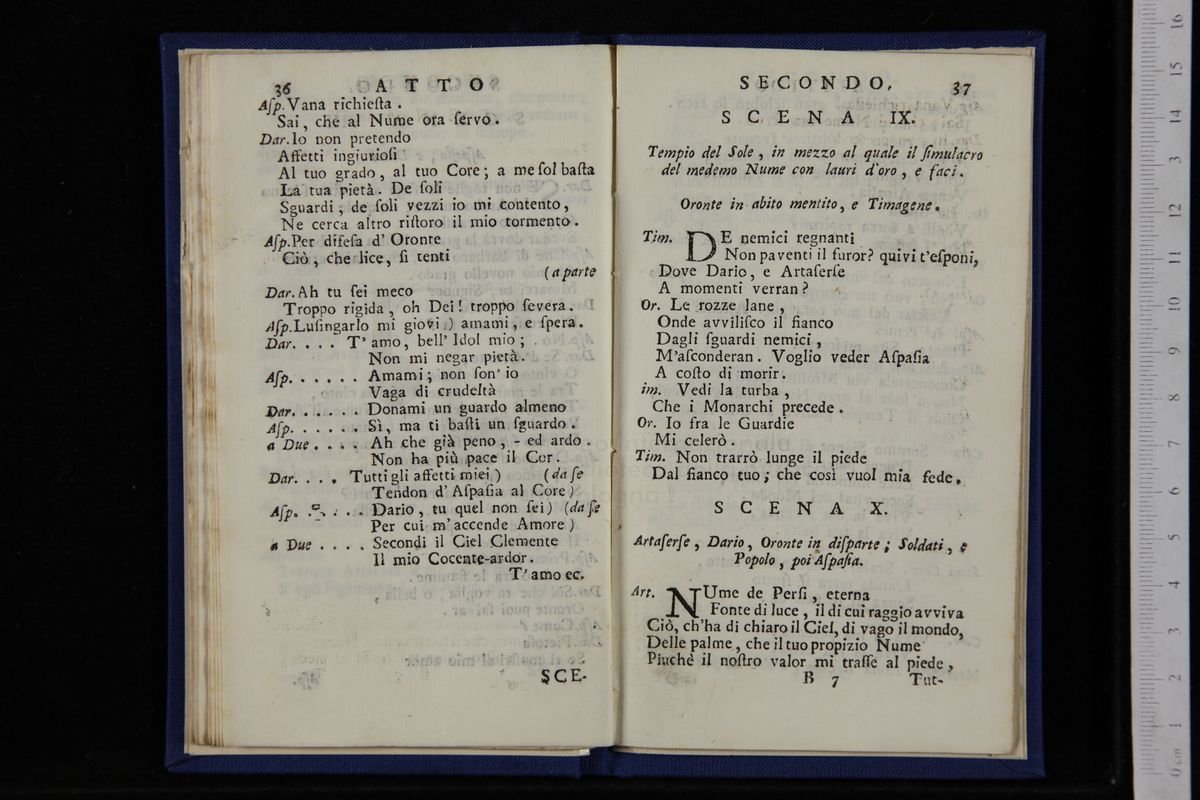 36 ATTO
Aſp. Vana richieſta .
Sai, che al Nume ora ſervo.
Dar. Io non pretendo
Affetti ingiurioſi
Al tuo grado, al tuo Core; a me ſol baſta
La tua pietà. De ſoli
Sguardi, de ſoli vezzi io mi contento,
Ne cerca altro riſtoro il mio tormento.
Aſp. Per difeſa d' Oronte
Ciò, che lice, ſi tenti
(a parte
Dar. Ah tu ſei meco
Troppo rigida, oh Dei! troppo ſevera.
Aſp. Luſingarlo mi giovi ) amami, e ſpera.
Dar. . . . T' amo, bell' Idol mio ;
Non mi negar pietà.
Aſp. . . . . . Amami; non ſon' io
Vaga di crudeltà
Dar. . . . . . Donami un guardo almeno
Aſp. . . . . . Sì, ma ti baſti un ſguardo.
a Due . . . . Ah che già peno, - ed ardo.
Non ha più pace il Cor.
Dar. . . . Tutti gli affetti miei ) (da ſe
Tendon d' Aſpaſia al Core)
Aſp. . . . . . Dario, tu quel non ſei) (da ſe
Per cui m' accende Amore)
a Due . . . . Secondi il Ciel Clemente
Il mio Cocente-ardor.
T' amo ec.
SCE-
SECONDO. 37
SCENA IX.
Tempio del Sole, in mezzo al quale il ſimulacro
del medemo Nume con lauri d'oro, e faci.
Oronte in abito mentito, e Timagene.
Tim. DE nemici regnanti
Non paventi il furor? quivi t'eſponi,
Dove Dario, e Artaſerſe
A momenti verran?
Or. Le rozze lane,
Onde avviliſco il fianco
Dagli ſguardi nemici,
M'aſconderan. Voglio veder Aſpaſia
A coſto di morir.
im. Vedi la turba,
Che i Monarchi precede.
Or. Io fra le Guardie
Mi celerò.
Tim. Non trarrò lunge il piede
Dal fianco tuo; che così vuol mia fede.
SCENA X.
Artaſerſe, Dario, Oronte in diſparte; Soldati, e
Popolo, poi Aſpaſia.
Art. NUme de Perſi, eterna
Fonte di luce, il di cui raggio avviva
Ciò, ch'ha di chiaro il Ciel, di vago il mondo,
Delle palme, che il tuo propizio Nume
Piuchè il noſtro valor mi traſſe al piede,
B 7 Tut-
0 cm 1 2 3 4 5 6 7 8 9 10 11 12 13 14 15 16